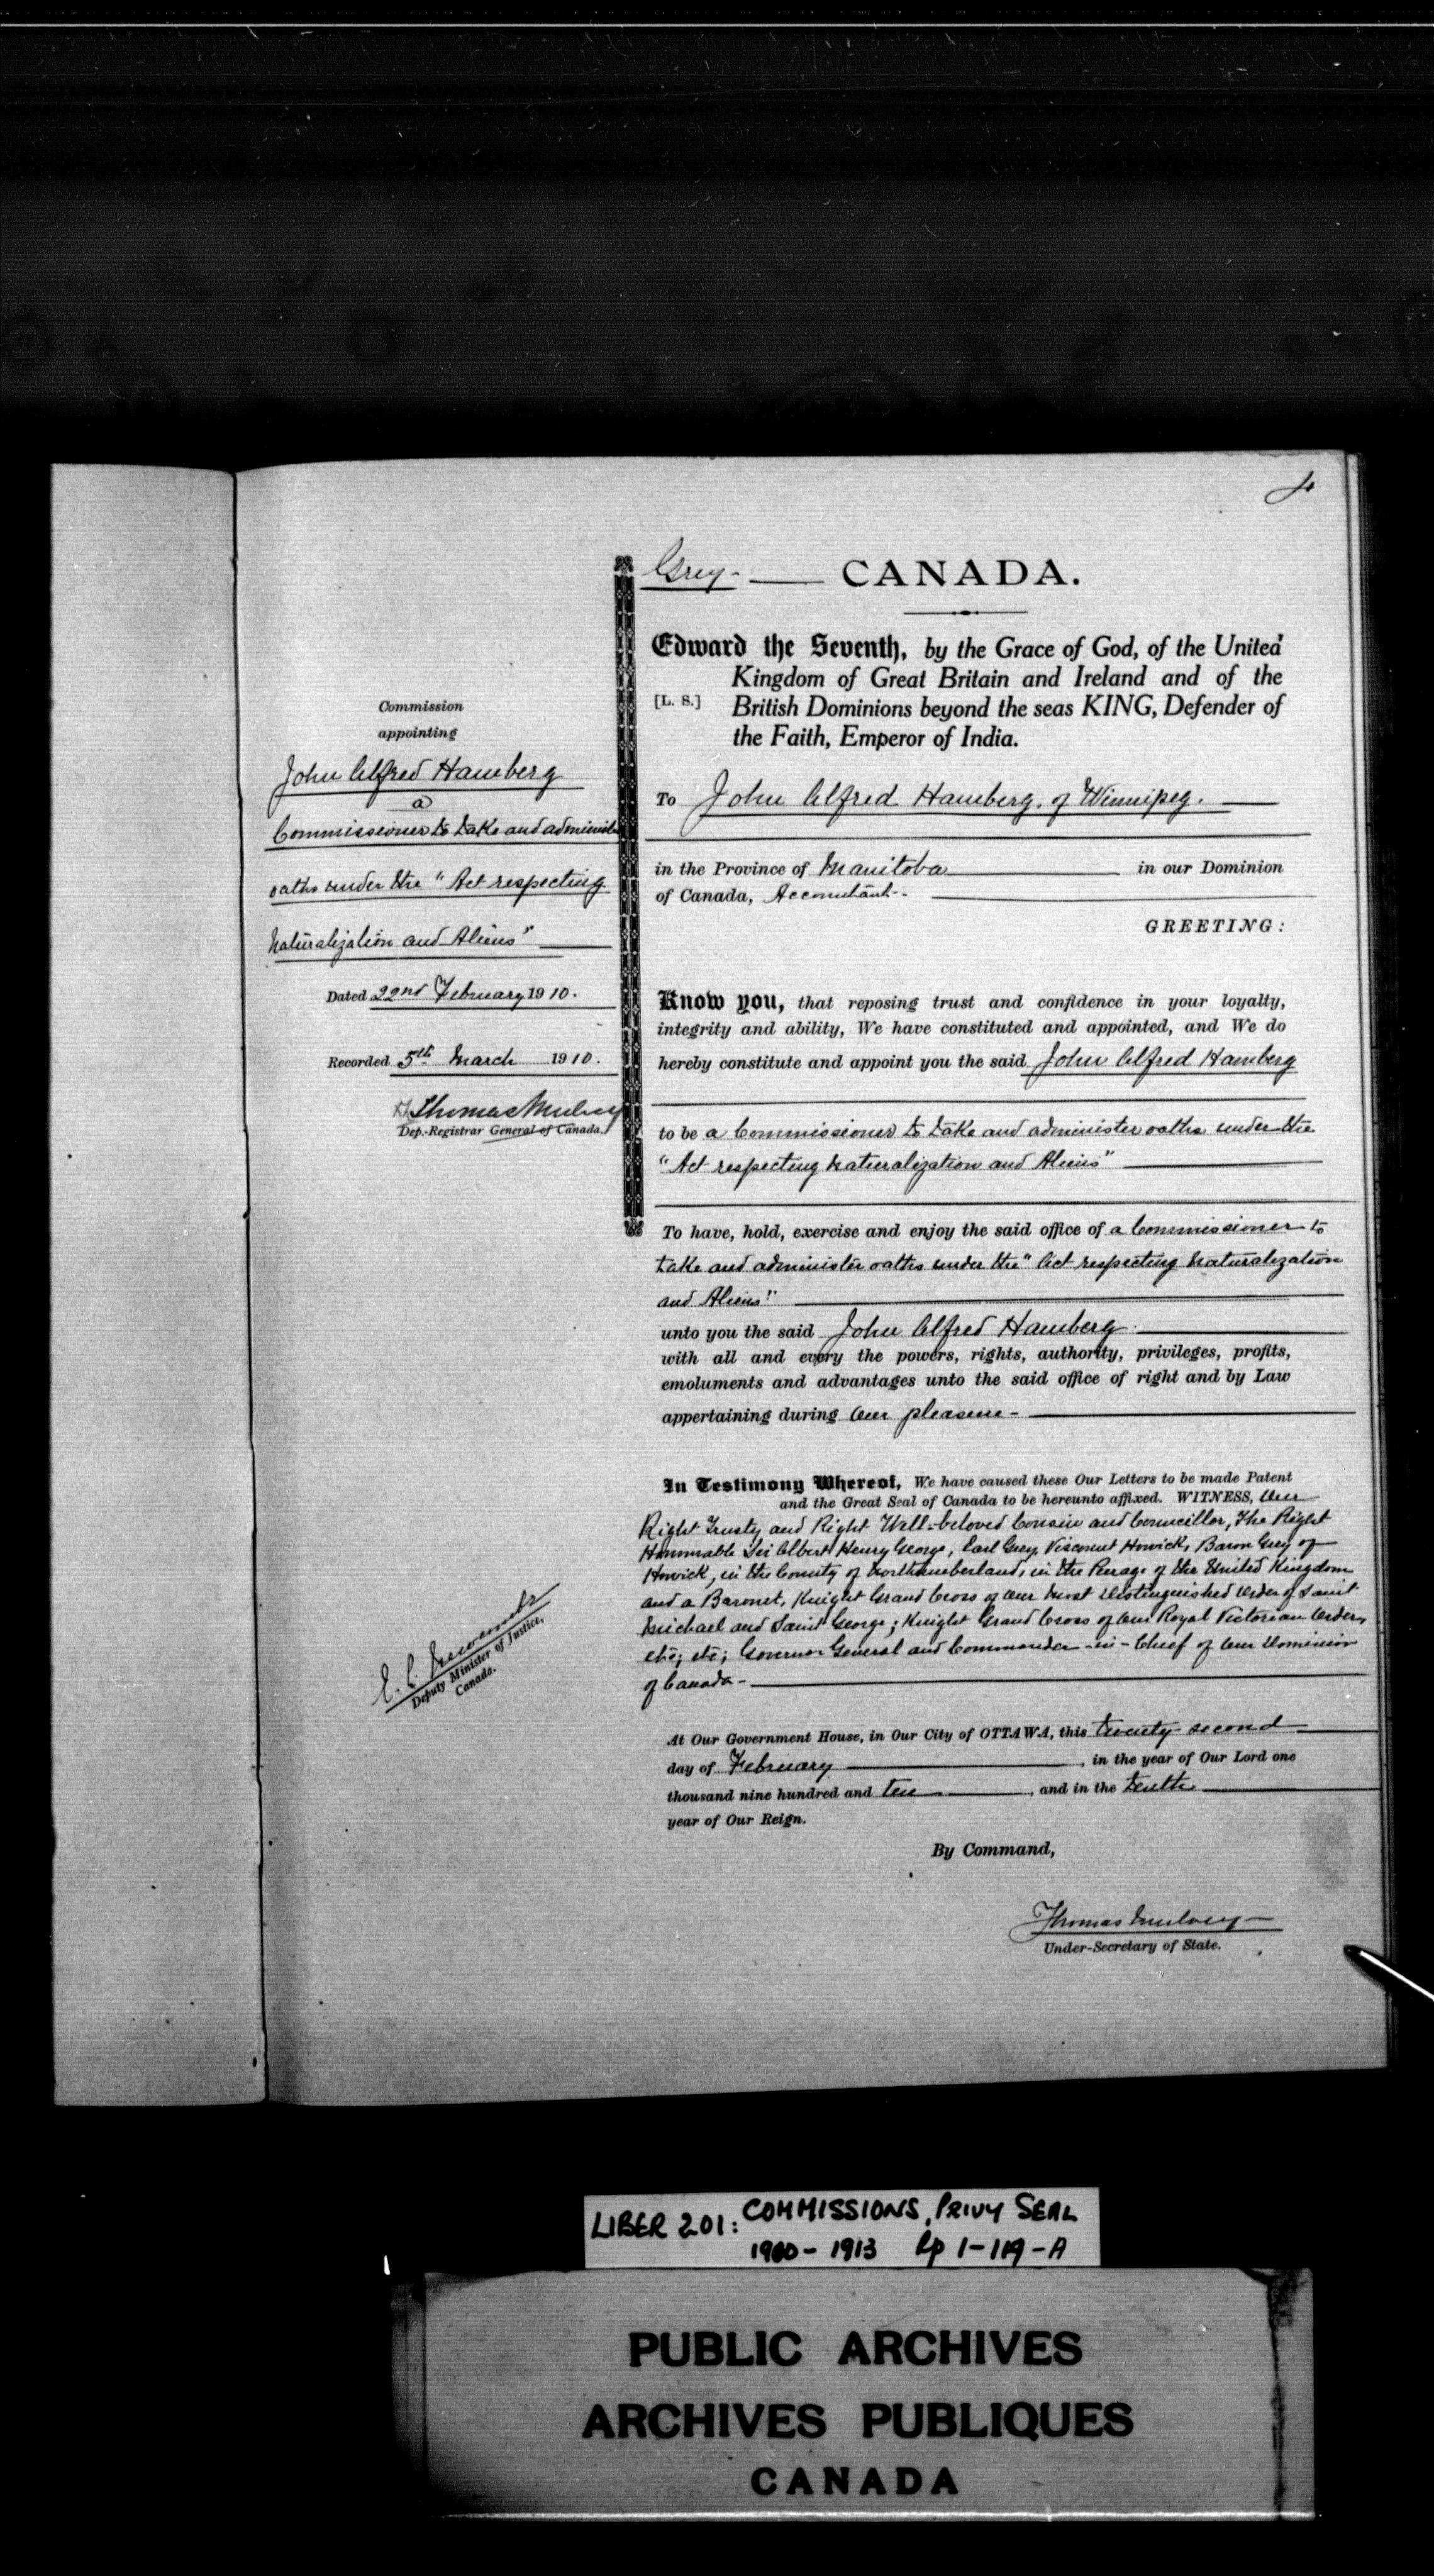 4
Grey - CANADA.
Edward the Seventh, by the Grace of God, of the United
Kingdom of Great Britain and Ireland and of the
[L. S.] British Dominions beyond the seas KING, Defender of
the Faith, Emperor of India.
Commission
appointing
John Alfred Hamberg
a
Commissioner to take and administer
oaths under the "Act respecting
Naturalization and Aliens"
Dated 22nd February 1910.
Recorded 5th March 1910.
Thomas Mulvey
Dep.-Registrar General of Canada.
To John Alfred Hamberg, of Winnipeg.
in the Province of Manitoba in our Dominion
of Canada, Accountant.
GREETING:
Know you, that reposing trust and confidence in your loyalty,
integrity and ability, We have constituted and appointed, and We do
hereby constitute and appoint you the said John Alfred Hamberg
to be a Commissioner to take and administer oaths under the
"Act respecting Naturalization and Aliens"
To have, hold, exercise and enjoy the said office of a Commissioner to
take and administer oaths under the "Act respecting Naturalization
and Aliens"
unto you the said John Alfred Hamberg
with all and every the powers, rights, authority, privileges, profits,
emoluments and advantages unto the said office of right and by Law
appertaining during Our pleasure -
In Testimony Whereof, We have caused these Our Letters to be made Patent
and the Great Seal of Canada to be hereunto affixed. WITNESS, Our
Right Trusty and Right Well-beloved Cousin and Councillor, The Right
Honourable Sir Albert Henry George, Earl Grey, Viscount Howick, Baron Grey of
Howick, in the County of Northumberland, in the Peerage of the United Kingdom
and a Baronet, Knight Grand Cross of Our Most Distinguished Order of Saint
Michael and Saint George; Knight Grand Cross of Our Royal Victorian Order,
etc; etc; Governor General and Commander-in-Chief of Our Dominion
of Canada -
E. L. Newcombe
Deputy Minister of Justice,
Canada.
At Our Government House, in Our City of OTTAWA, this twenty second
day of February, in the year of Our Lord one
thousand nine hundred and ten, and in the tenth
year of Our Reign.
By Command,
Thomas Mulvey
Under-Secretary of State.
LIBER 201: COMMISSIONS, PRIVY SEAL
1900 - 1913 pp 1-119-A
PUBLIC ARCHIVES
ARCHIVES PUBLIQUES
CANADA